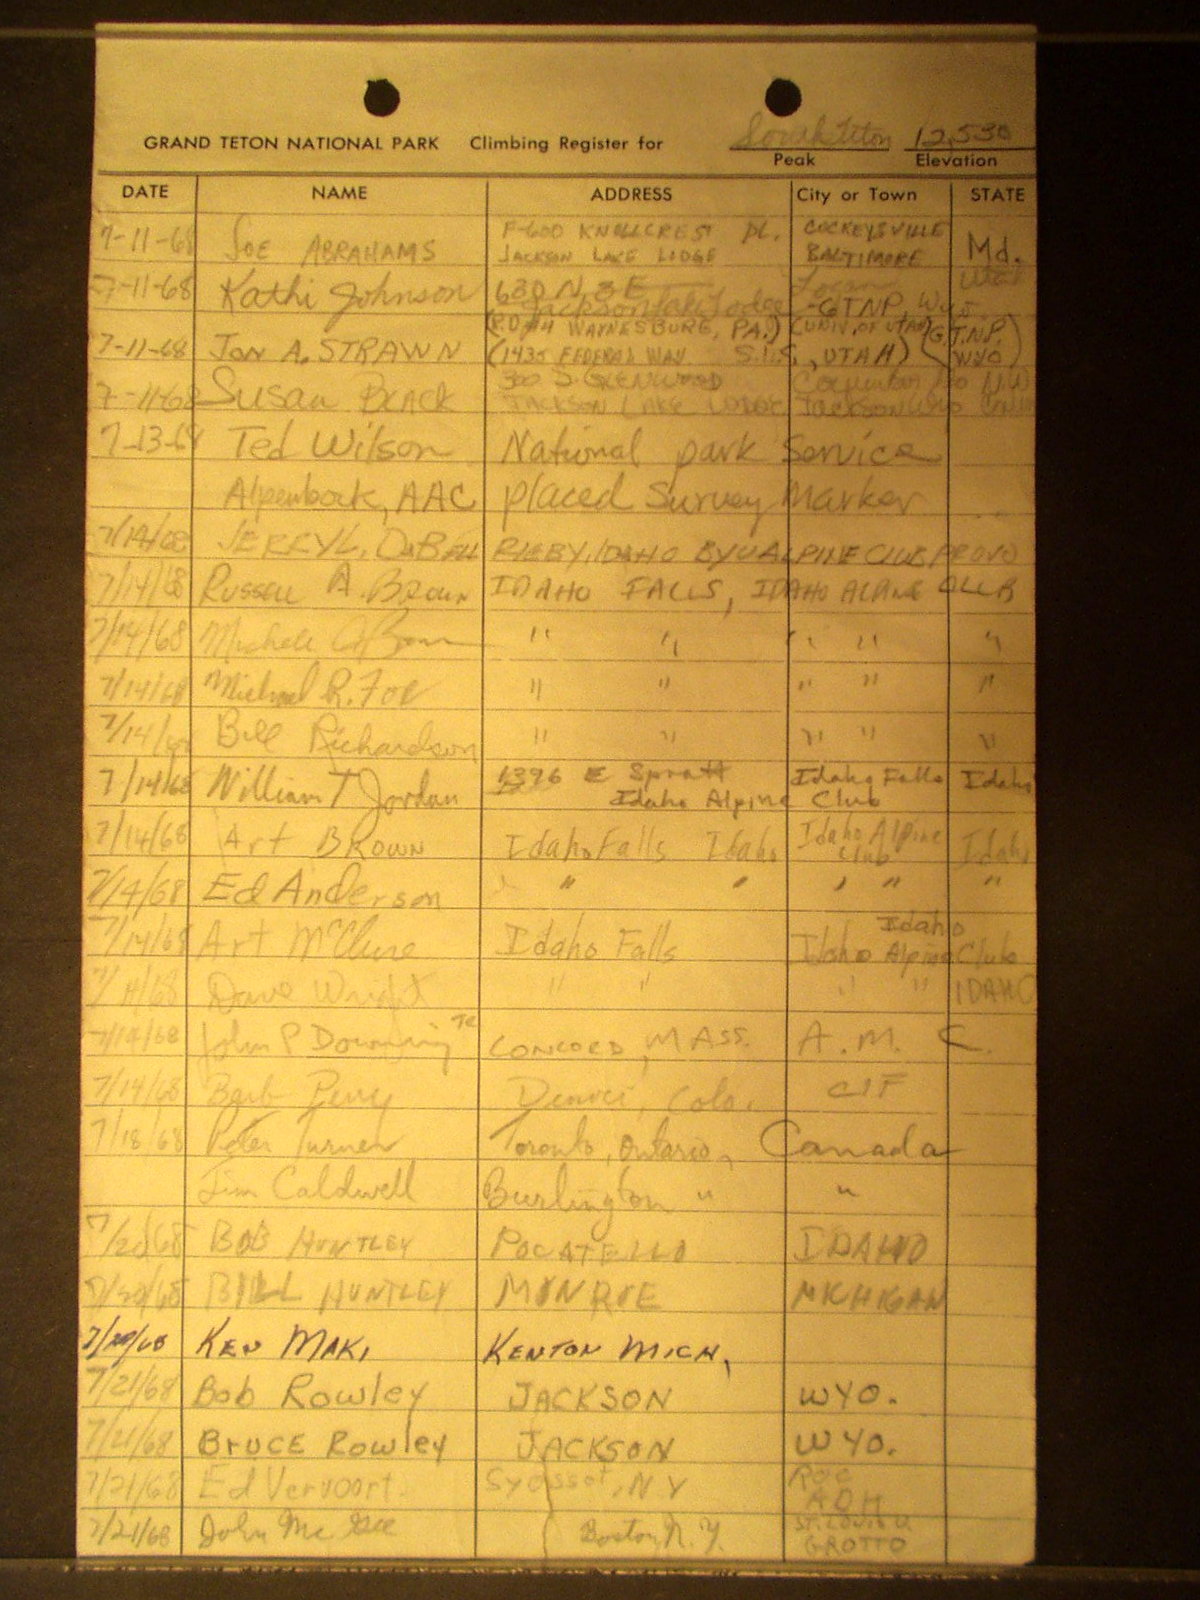 GRAND TETON NATIONAL PARK Climbing Register for South Teton 12,530
Peak Elevation
DATE NAME ADDRESS City or Town STATE
7-11-68 JOE ABRAHAMS F-600 KNOLLCREST PL. COCKEYSVILLE Md.
JACKSON LAKE LODGE BALTIMORE
7-11-68 Kathi Johnson 630 N 3 E Logan Utah
Jackson Lake Lodge - GTNP, Wyo.
7-11-68 JON A. STRAWN (R.D #4 WAYNESBURG, PA.) (UNIV. OF UTAH) (G.T.N.P.
(1435 FEDERAL WAY S.L.C., UTAH) WYO)
7-11-68 Susan BLACK 300 S. GLENWOOD
JACKSON LAKE LODGE Jackson Wyo
7-13-68 Ted Wilson National park Service
Alpenbock, AAC placed Survey Marker
7/14/68 JERRY L. RIGBY, IDAHO BYU ALPINE CLUB PROVO
7/14/68 RUSSELL A. BROWN IDAHO FALLS, IDAHO ALPINE CLUB
7/14/68 " " " " "
7/14/68 Michael R. Foe " " " " "
7/14/68 Bill Richardson " " " " "
7/14/68 William T Jordan 1396 E Spratt Idaho Falls Idaho
Idaho Alpine Club
7/14/68 Art BROWN Idaho Falls Idaho Idaho Alpine Club Idaho
7/14/68 Ed Anderson " " " " "
7/14/68 Art McClure Idaho Falls Idaho
Idaho Alpine Club
7/14/68 Dave Wright " " " " IDAHO
7/14/68 John P Downing Jr. CONCORD, MASS. A. M. C.
7/14/68 Barb Perry Denver, Colo.
7/18/68 Peter Turner Toronto, Ontario, Canada
Jim Caldwell Burlington " "
7/20/68 BOB HUNTLEY POCATELLO IDAHO
7/20/68 BILL HUNTLEY MONROE MICHIGAN
7/20/68 KEN MAKI KENTON MICH,
7/21/68 Bob Rowley JACKSON WYO.
7/21/68 BRUCE ROWLEY JACKSON WYO.
7/21/68 Ed Vervoort Syosset, NY
7/21/68 John McGee Boston N.Y. ST. LOUIS U.
GROTTO